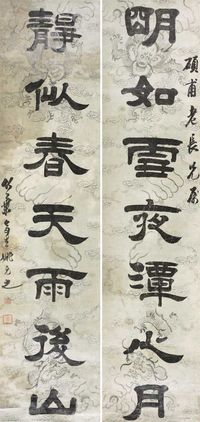 碩甫老長兄屬
明如雪夜潭心月
靜似春天雨後山
竹葉亭生姚元之